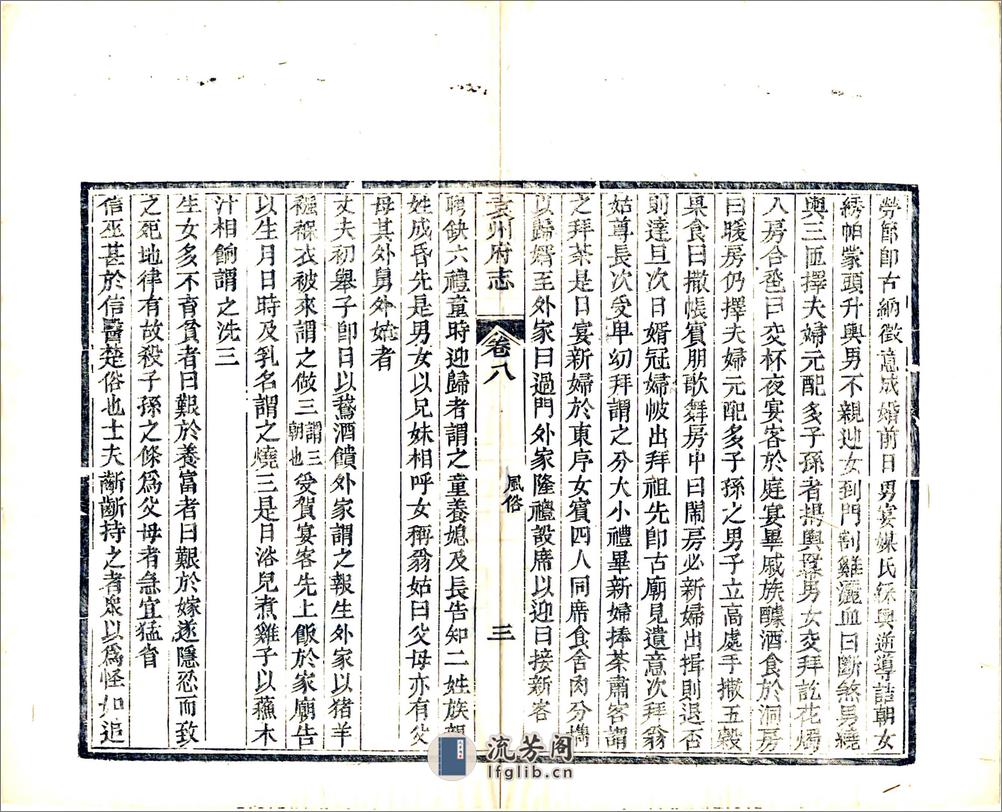 勞節即古納徵意成婚前日男宴媒氏綵輿逆導詰朝女
綉帕蒙頭升輿男不親迎女到門割雞灑血曰斷煞男繞
輿三匝擇夫婦元配多子孫者揚輿簾男女交拜訖花燭
入房合卺曰交杯夜宴客於庭宴畢戚族醵酒食於洞房
曰暖房仍擇夫婦元配多子孫之男子立高處手撒五穀
果食曰撒帳賓朋歌舞房中曰鬧房必新婦出揖則退否
則達旦次日婿冠婦帔出拜祖先即古廟見遺意次拜翁
姑尊長次受卑幼拜謂之分大小禮畢新婦捧茶肅客謂
之拜茶是日宴新婦於東序女賓四人同席食舍肉分儁
以歸婿至外家曰過門外家隆禮設席以迎曰接新客
袁州府志 卷八 風俗 三
聘缺六禮童時迎歸者謂之童養媳及長告知二姓族親
姓成昏先是男女以兄妹相呼女稱翁姑曰父母亦有父
母其外舅外姑者
丈夫初舉子即日以鵞酒饋外家謂之報生外家以猪羊
襁褓衣被來謂之做三謂三朝也受賀宴客先上飯於家廟告
以生月日時及乳名謂之燒三是日浴兒煮雞子以蘸木
汁相餉謂之洗三
生女多不育貧者曰艱於養富者曰艱於嫁遂隱忍而致
之死地律有故殺子孫之條爲父母者急宜猛省
信巫甚於信醫楚俗也士夫齗齗持之者衆以爲怪如追
流芳阁
lfglib.cn